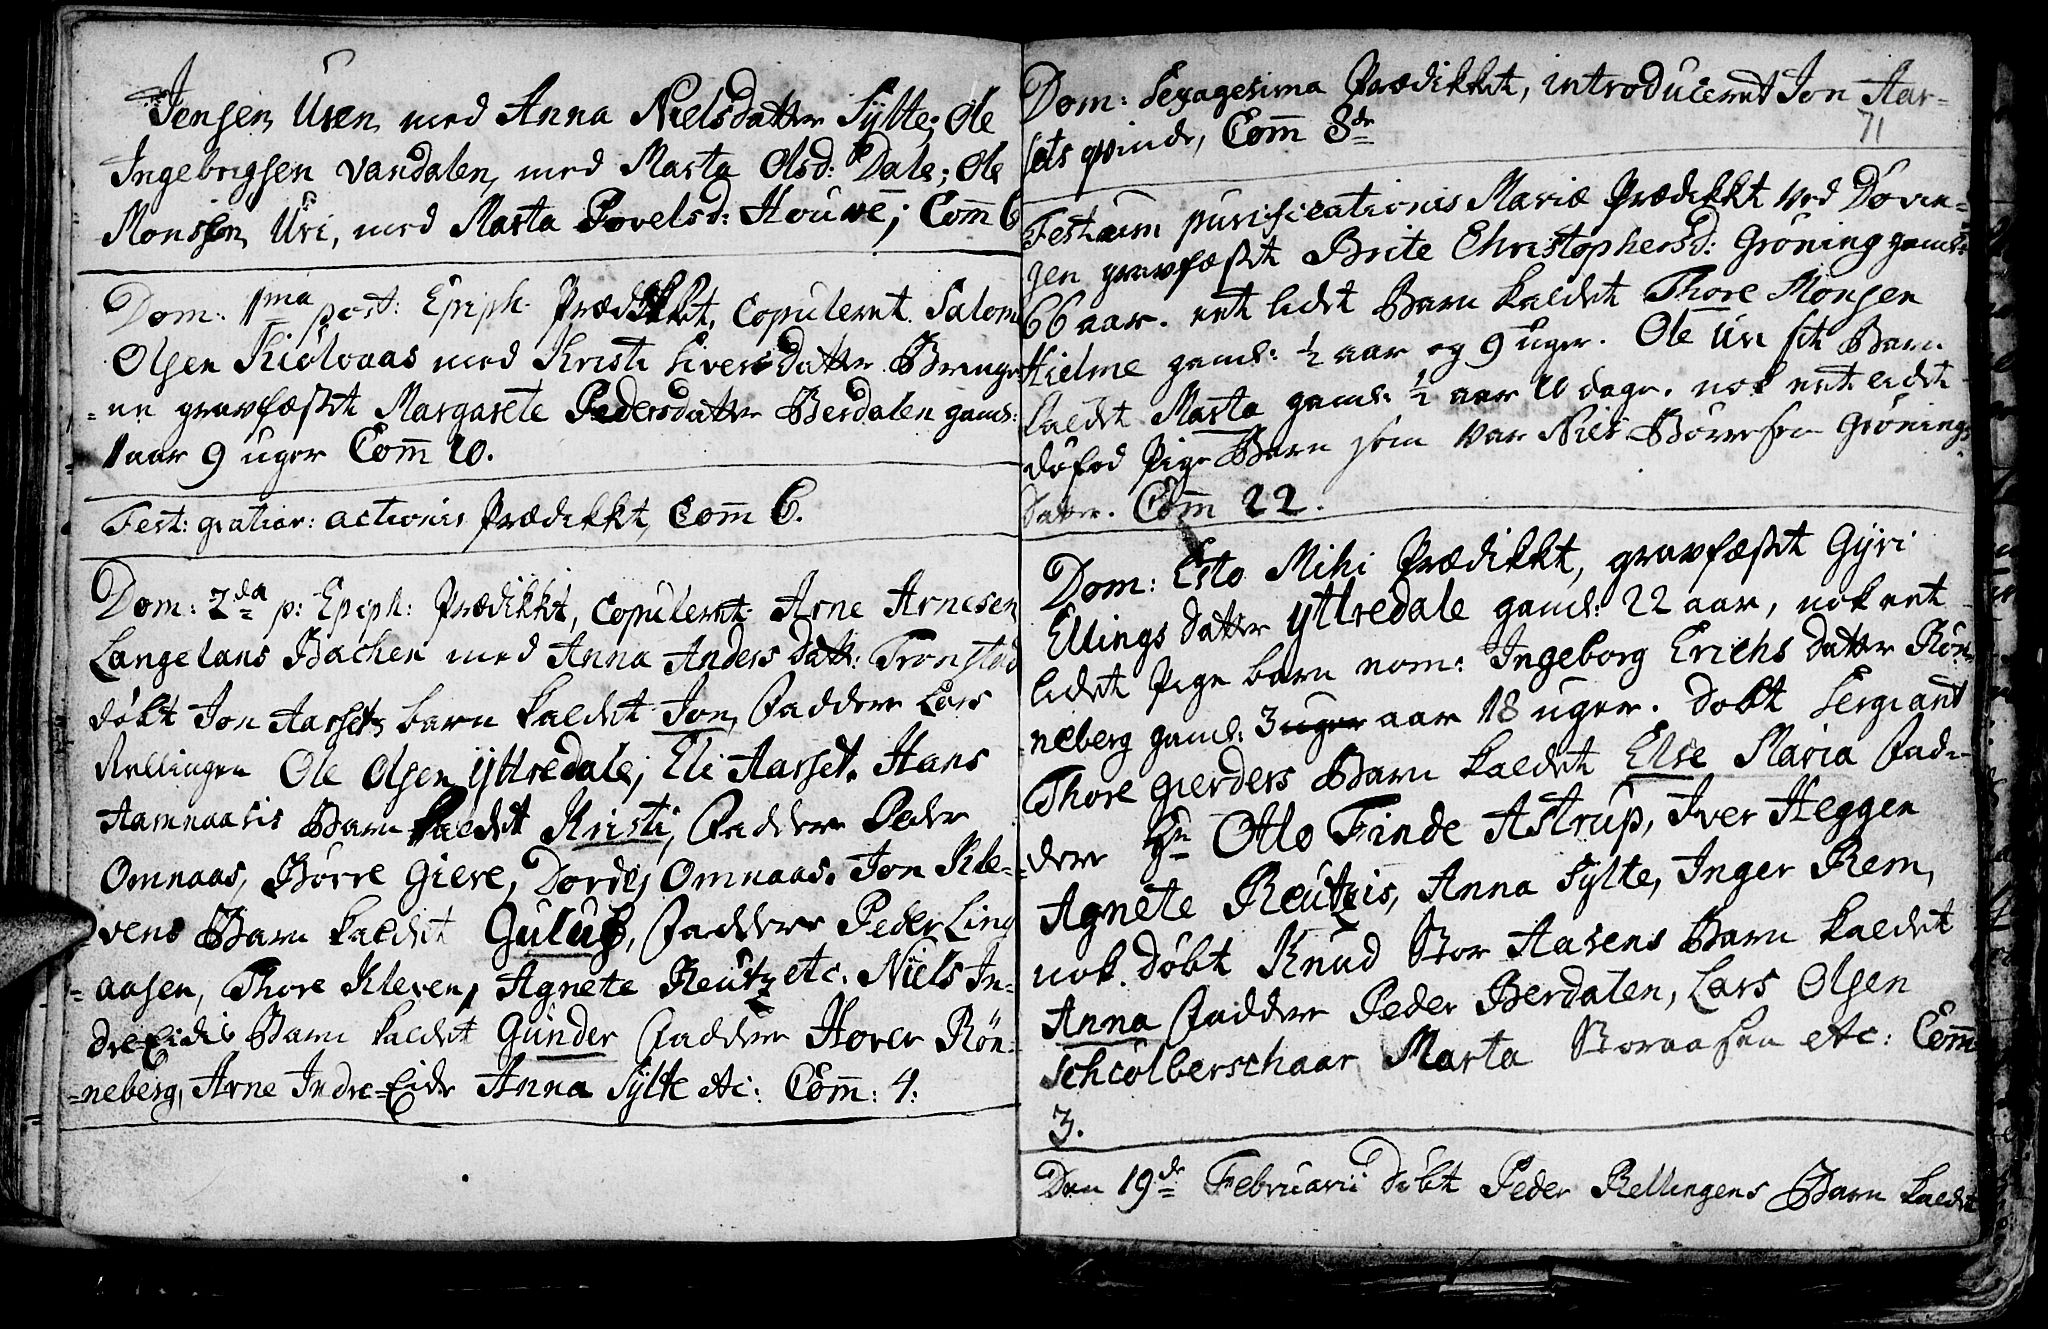 Jensen Uren med Anna Nielsdatter Sylte; Ole
Ingebrigsen Vandalen, med Marta Olsd: Dale; Ole
Monssen Uri, med Marta Povelsd: Houve; Com̄ 6
Dom: 1ma post: Epiph. Prædikket, Copuleret Salom
Olsen Kiölvaas med Kristi Siversdatter Bringe
=ne gravfæstet Margarete Pedersdatter Berdalen gaml:
1 aar 9 uger Com̄ 10.
Fest: gratiar: actionis Prædikket, Com̄ 6.
Dom: 2da p: Epiph: Prædikket, Copuleret Arne Arnesen
Langelans Bachen med Anna Anders Datt: Tronstad
döbt Jon Aarsets barn kaldet Jon, Faddere Lars
Rellingen Ole Olsen Yttredale, Eli Aarset. Hans
Hamnaasis Barn kaldet Kristi, Faddere Peder
Omnaas, Börre Giere, Dordej Omnaas. Jon Kle-
=vens Barn kaldet Guluf, Faddere Peder Ling
=aasen, Thore Kleven, Agnete Reutz etc. Niels In=
dre=Eidis Barn kaldet Gunder Faddere Hover Rön=
=neberg, Arne Indre=Eide Anna Sylte etc: Com̄: 4.
Dom: Sexagesima Prædikket, introduceret Jon Aar-
71
sets qvinde, Com̄ 8de
Festum purificationis Mariæ Prædikket ved Doven=
gen gravfæstet Brite Christophersd: Gröning gaml:
66 aar. eet lidet Barn kaldet Thore Monsen
Hielme gaml: ½ aar og 9 uger. Ole Uri sit Barn
kaldet Marta gaml: ½ aar 10 dage. nok eet lidet
döfød Pige Barn som var Niels Börresen Grönings
Datter. Com̄ 22.
Dom: Esto Mihi Prædikket, gravfæstet Gyri
Ellings datter Yttredale gaml: 22 aar, nok eet
lidet Pige barn nom: Ingeborg Erichs datter Rön=
=neberg gaml: 3 uger aar 18 uger. döbt Sergiant
Thore Gierders Barn kaldet Else Maria Fad=
=dere Hr Otto Finde Astrup, Iver Heggen
Agnete Reutzis, Anna Sylte, Inger Rem,
nok döbt Knud Stor Aasens Barn kaldet
Anna Faddere Peder Berdalen, Lars Olsen
Schiölberschaar Marta Storaasen etc: Com̄
3.
Den 19de Februarii döbt Peder Rellingens Barn kaldet